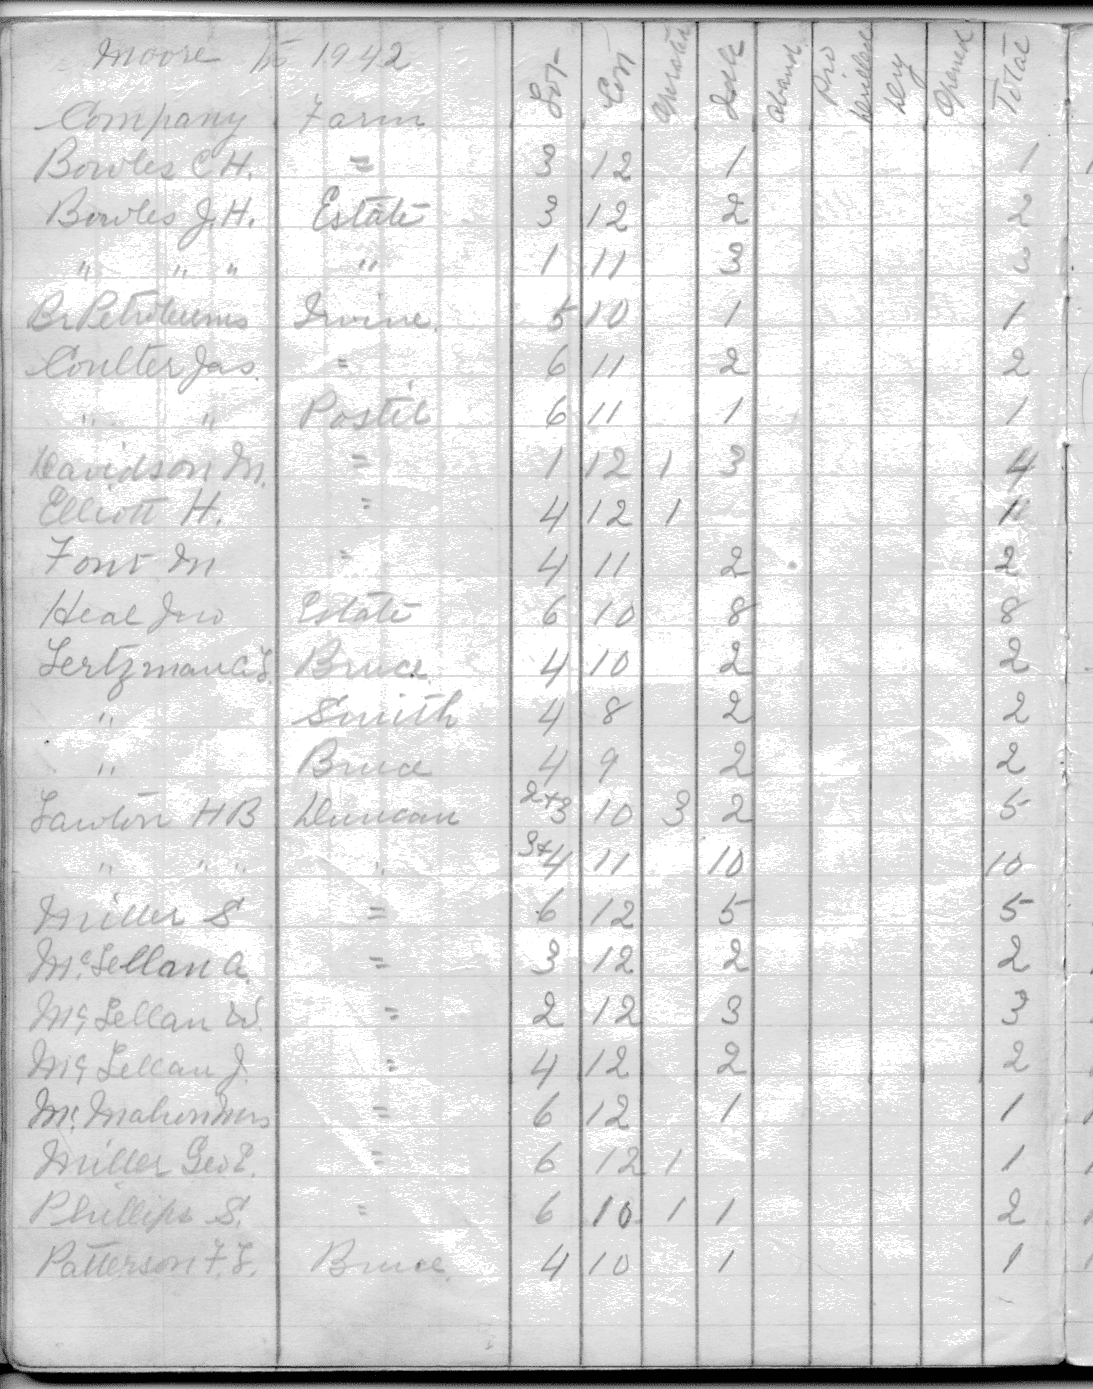 Moore 1942
Company Farm Lot Con Operated Idle Aband Drilled Dry Opened Total
Bowles C H. = 3 12 1 1
Bowles J. H. Estate 3 12 2 2
" " " " 1 11 3 3
Br Petroleums Irvine. 5 10 1 1
Coulter Jas. = 6 11 2 2
" " 6 11 1 1
Davidson M. = 1 12 1 3 4
Elliott H. = 4 12 1 1
Font M = 4 11 2 2
Heal Jno Estate 6 10 8 8
Bruce 4 10 2 2
" Smith 4 8 2 2
" Bruce 4 9 2 2
Lawton H B Duncan 2+3 10 3 2 5
" " " " 3+4 11 10 10
Miller S = 6 12 5 5
Mc Lellan A. = 3 12 2 2
Mc Lellan W. = 2 12 3 3
Mc Lellan J. = 4 12 2 2
Mc Mahon Mrs = 6 12 1 1
Miller Geo E. = 6 12 1 1
Phillips S. = 6 10 1 1 2
Patterson F. L. Bruce. 4 10 1 1